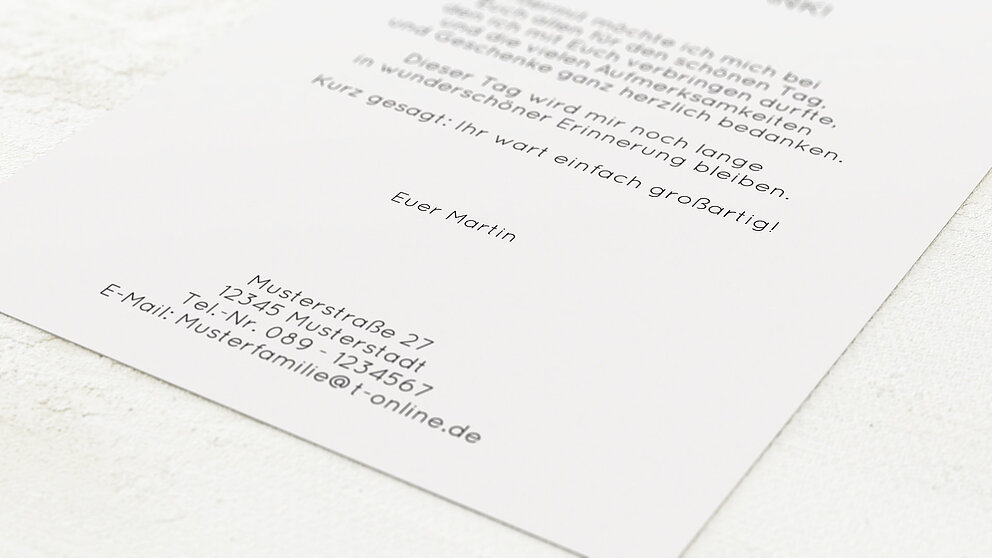 möchte ich mich bei
Euch allen für den schönen Tag,
den ich mit Euch verbringen durfte,
und die vielen Aufmerksamkeiten
und Geschenke ganz herzlich bedanken.
Dieser Tag wird mir noch lange
in wunderschöner Erinnerung bleiben.
Kurz gesagt: Ihr wart einfach großartig!
Euer Martin
Musterstraße 27
12345 Musterstadt
Tel.-Nr. 089 - 1234567
E-Mail: Musterfamilie@t-online.de